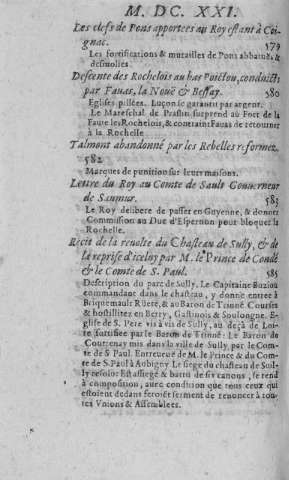 M. DC. XXI.
Les clefs de Pons apportees au Roy estant à Coi-
gnac. 579
Les fortifications & murailles de Pons abbatuës &
desmolies.
Descente des Rochelois au bas Poictou, conduicts
par Fauas, la Nouë & Bessay. 580
Eglises pillées. Luçon se garantit par argent.
Le Mareschal de Praslin surprend au Fort de la
Faute les Rochelois, & contraint Fauas de retourner
à la Rochelle.
Talmont abandonné par les Rebelles reformez.
582
Marques de punition sur leurs maisons.
Lettre du Roy au Comte de Sault Gouuerneur
de Saumur. 583
Le Roy delibere de passer en Guyenne, & donner
Commission au Duc d'Espernon pour bloquer la
Rochelle.
Recit de la reuolte du Chasteau de Sully, & de
la reprise d'iceluy par M. le Prince de Condé
& le Comte de S. Paul. 585
Description du parc de Sully. Le Capitaine
commandant dans le chasteau, y donne entrée à
Briquemault Ruëre, & au Baron de Tinné Courses
& hostilitez en Berry, Gastinois & Soulongne. E-
glise de S. Pere vis à vis de Sully, au deçà de Loi-
re fortifiée par le Baron de Tinné. Le Baron de
Courtenay mis dans la ville de Sully, par le Com-
te de S. Paul. Entreueuë de M. le Prince & du Com-
te de S. Paul à Aubigny Le siege du chasteau de Sul-
ly resolu: Est assiegé & batu de six canons, se rend
à composition, auec condition que tous ceux qui
estoient dedans feroiēt serment de renoncer à tou-
tes Vnions & Assemblées.